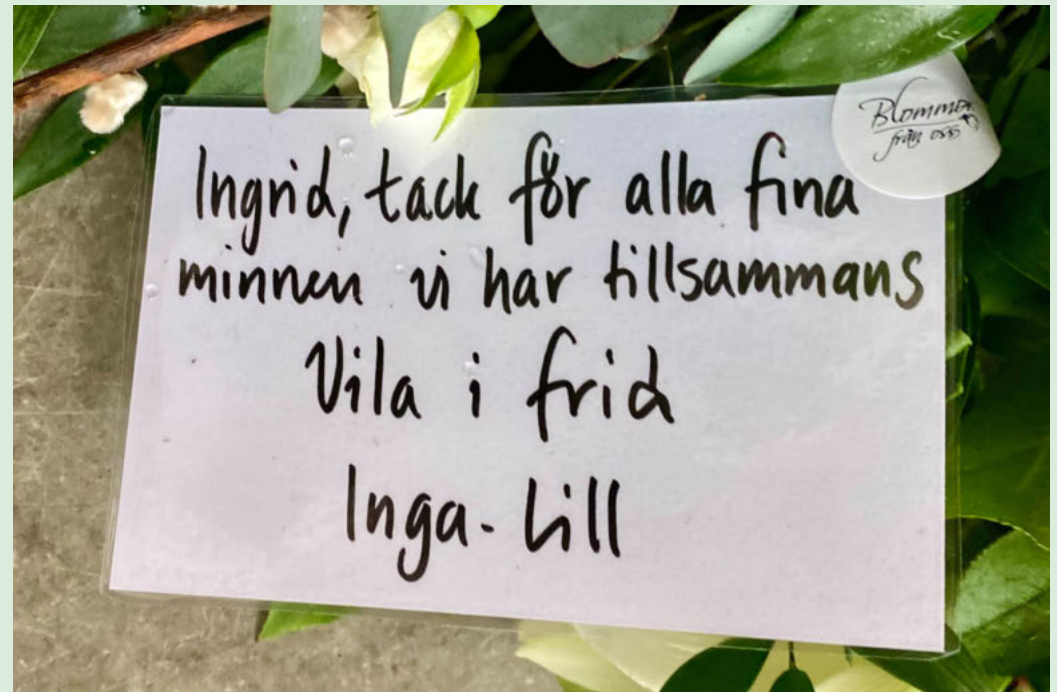 Blommor
från oss
Ingrid, tack för alla fina
minnen vi har tillsammans
Vila i frid
Inga-Lill